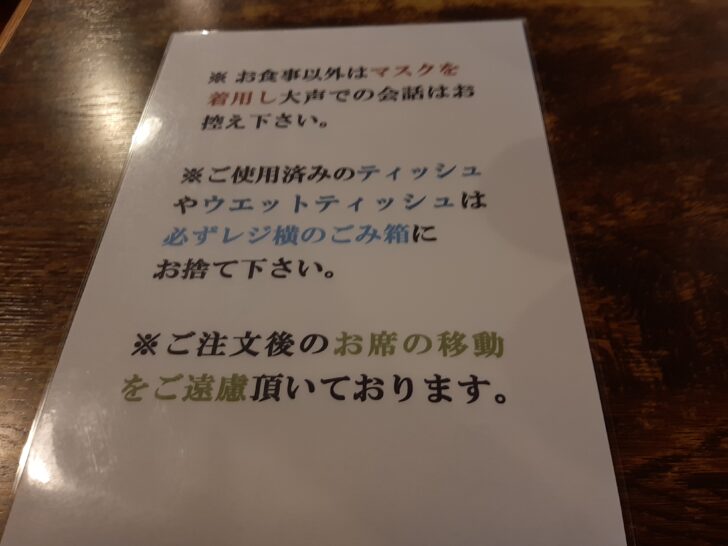 ※ お食事以外はマスクを
着用し大声での会話はお
控え下さい。
※ご使用済みのティッシュ
やウエットティッシュは
必ずレジ横のごみ箱に
お捨て下さい。
※ご注文後のお席の移動
をご遠慮頂いております。